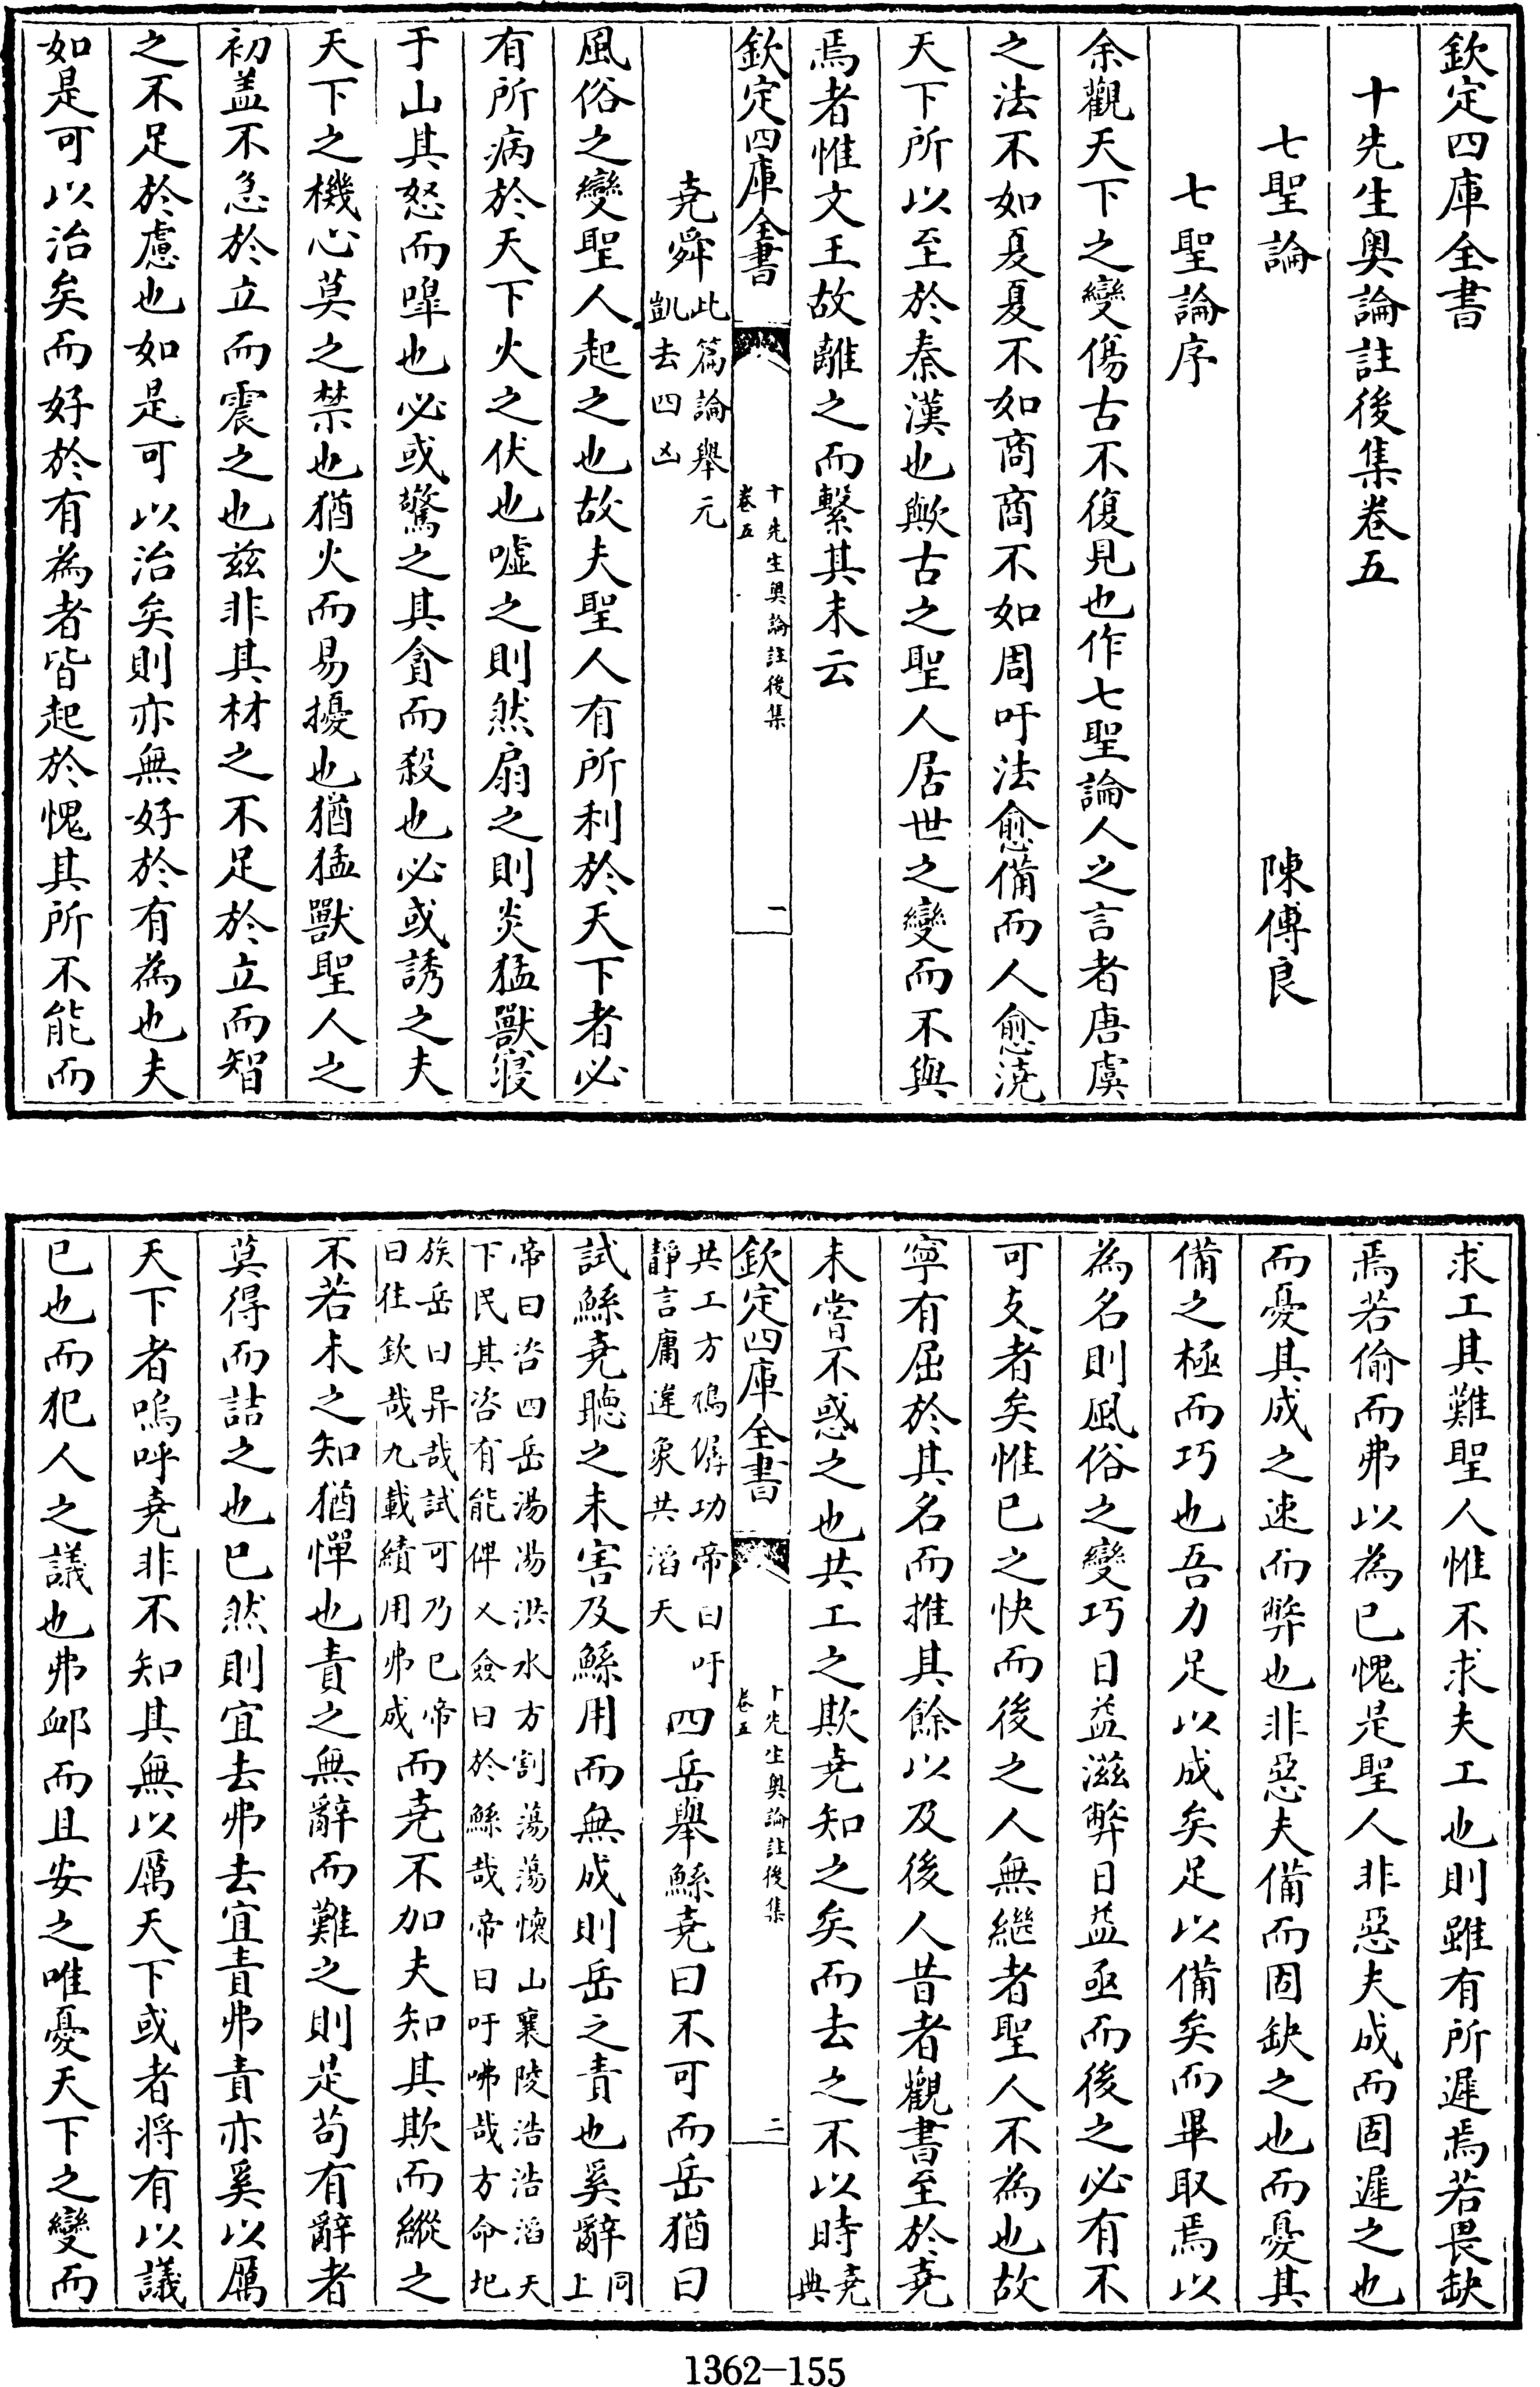 欽定四庫全書
十先生奥論註後集卷五
七聖論
陳傅良
七聖論序
余觀天下之變傷古不復見也作七聖論人之言者唐虞
之法不如夏夏不如商商不如周吁法愈備而人愈澆
天下所以至於秦漢也歟古之聖人居世之變而不與
焉者惟文王故離之而繫其末云
欽定四庫全書
十先生奥論註後集
卷五
一
堯舜此篇論舉元
凱去四凶
風俗之變聖人起之也故夫聖人有所利於天下者必
有所病於天下火之伏也嘘之則然扇之則炎猛獸寝
于山其怒而嘷也必或驚之其貪而殺也必或誘之夫
天下之機心莫之禁也猶火而易擾也猶猛獸聖人之
初盖不急於立而震之也兹非其材之不足於立而智
之不足於慮也如是可以治矣則亦無好於有為也夫
如是可以治矣而好於有為者皆起於愧其所不能而
求工其難聖人惟不求夫工也則雖有所遲焉若畏缺
焉若偷而弗以為已愧是聖人非惡夫成而固遲之也
而憂其成之速而弊也非惡夫備而固缺之也而憂其
備之極而巧也吾力足以成矣足以備矣而畢取焉以
為名則風俗之變巧日益滋弊日益亟而後之必有不
可支者矣惟已之快而後之人無繼者聖人不為也故
寧有屈於其名而推其餘以及後人昔者觀書至於堯
未嘗不惑之也共工之欺堯知之矣而去之不以時堯
典
欽定四庫全書
十先生奥論註後集
卷五
二
共工方鳩僝功帝曰吁
靜言庸違象共滔天
四岳舉鯀堯曰不可而岳猶曰
試鯀堯聽之未害及鯀用而無成則岳之責也奚辭同
上
帝曰咨四岳湯湯洪水方割蕩蕩懷山襄陵浩浩滔天
下民其咨有能俾乂僉曰於鯀哉帝曰吁咈哉方命圯
族岳曰异哉試可乃已帝
曰往欽哉九載績用弗成
而堯不加夫知其欺而縱之
不若未之知猶憚也責之無辭而難之則是苟有辭者
莫得而詰之也已然則宜去弗去宜責弗責亦奚以厲
天下者嗚呼堯非不知其無以厲天下或者將有以議
已也而犯人之議也弗䘏而且安之唯憂天下之變而
1362-155